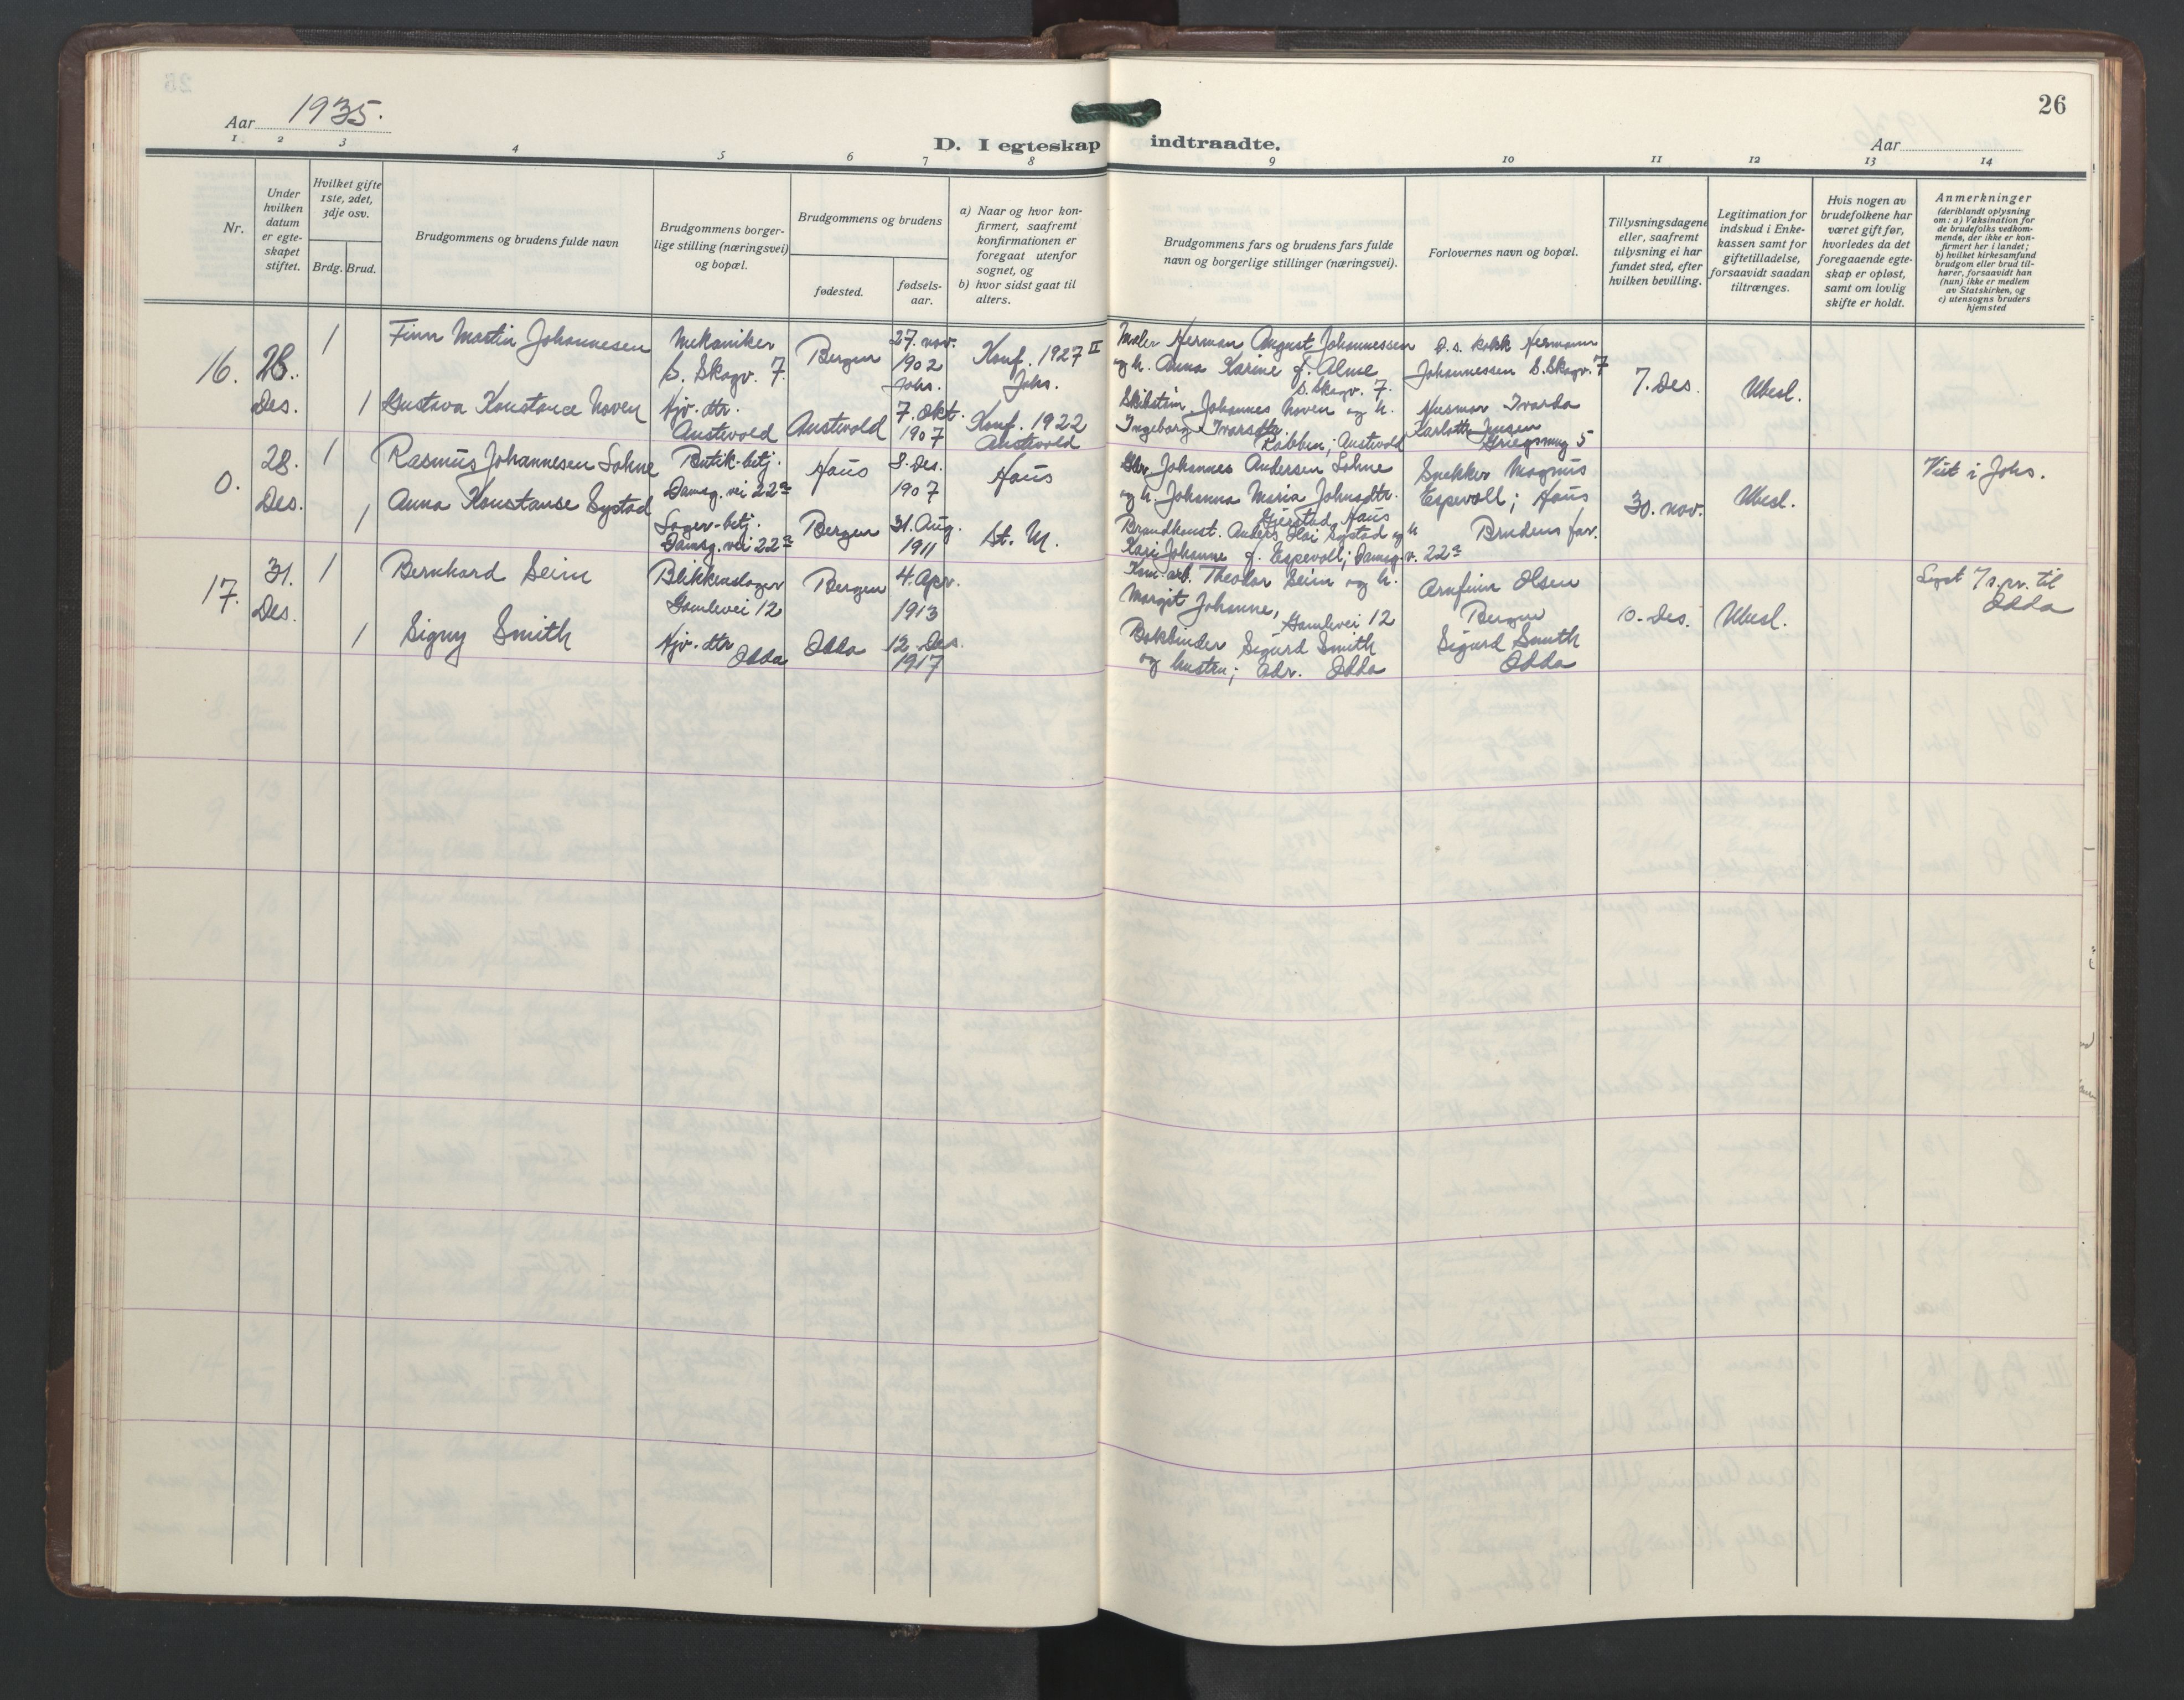 26
Aar 1935.
D. I egteskap indtraadte.
Aar
1. 2 3 4 5 6 7 8 9 10 11 12 13 14
Nr.
Under hvilken datum er egteskapet stiftet.
Hvilket gifte 1ste, 2det, 3dje osv.
Brdg. Brud.
Brudgommens og brudens fulde navn
Brudgommens borgerlige stilling (næringsvei) og bopæl.
Brudgommens og brudens
fødested.
fødselsaar.
a) Naar og hvor konfirmert, saafremt konfirmationen er foregaat utenfor sognet, og
b) hvor sidst gaat til alters.
Brudgommens fars og brudens fars fulde navn og borgerlige stillinger (næringsvei).
Forlovernes navn og bopæl.
Tillysningsdagene eller, saafremt tillysning ei har fundet sted, efter hvilken bevilling.
Legitimation for indskud i Enkekassen samt for giftetilladelse, forsaavidt saadan tiltrænges.
Hvis nogen av brudefolkene har været gift før, hvorledes da det foregaaende egteskap er opløst, samt om lovlig skifte er holdt.
Anmerkninger
(deriblandt oplysning om: a) Vaksination for de brudefolks vedkommende, der ikke er konfirmert her i landet;
b) hvilket kirkesamfund brudgom eller brud tilhører, forsaavidt han (hun) ikke er medlem av Statskirken, og
c) utensogns bruders hjemsted
16.
28.
Des.
1
Finn Martin Johannesen
Mekaniker
S. Skogv. 7.
Bergen
27. nov.
1902
Johs.
Konf. 1927 II
Johs.
Maler Herman August Johannessen
og h. Anna Karine f. Alme
S. Skogv. 7.
D.s. kokk Hermann
Johannessen S. Skogv. 7
7. Des.
Ubesl.
1
Gustava Konstance Noven
Hjv. dtr.
Austevold
Austevold
7. Okt.
1907
Konf. 1922
Austevold
Johannes Noven og h.
Ingeborg Ivarsdtr.
Rabben; Austevold
Karlotte Jensen
Griegsmug 5
0.
28.
Des.
1
Rasmus Johannesen Lohne
Butik-betj.
Damsg. vei 22a
Haus
8. Des.
1907
Haus
Gbr. Johannes Andersen Lohne
og h. Johanna Maria Johnsdtr.
Gjerstad, Haus
Snekker Magnus
Espevoll; Haus
30. nov.
Ubesl.
Viet i Johs.
1
Anna Konstanse Systad
Lager-betj.
Damsg. vei 22a
Bergen
31. Aug.
1911
St. M.
Brandkonst. Anders Systad og h
Kari Johanne f. Espevoll; Damsg. v. 22a
Brudens far.
17.
31.
Des.
1
Bernhard Seim
Blikkenslager
Gamlevei 12
Bergen
4. Apr.
1913
Kom. arb. Theodor Seim og h.
Margit Johanne, Gamlevei 12
Arnfinn Olsen
Bergen
0. Des.
Ubesl.
Lyst til
Odda
1
Signy Smith
Hjv. dtr
Odda
Odda
12. Des.
1917
Bokbinder Sigurd Smith
og hustru; Adr. Odda
Sigurd Smith
Odda